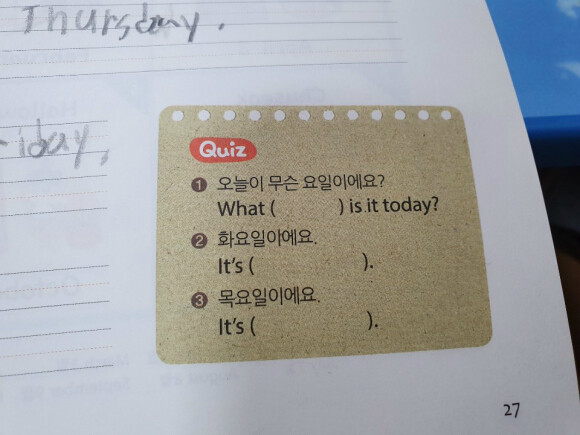 Thursday.
iday,
Quiz
1 오늘이 무슨 요일이에요?
What ( ) is it today?
2 화요일이에요.
It's ( ).
3 목요일이에요.
It's ( ).
27